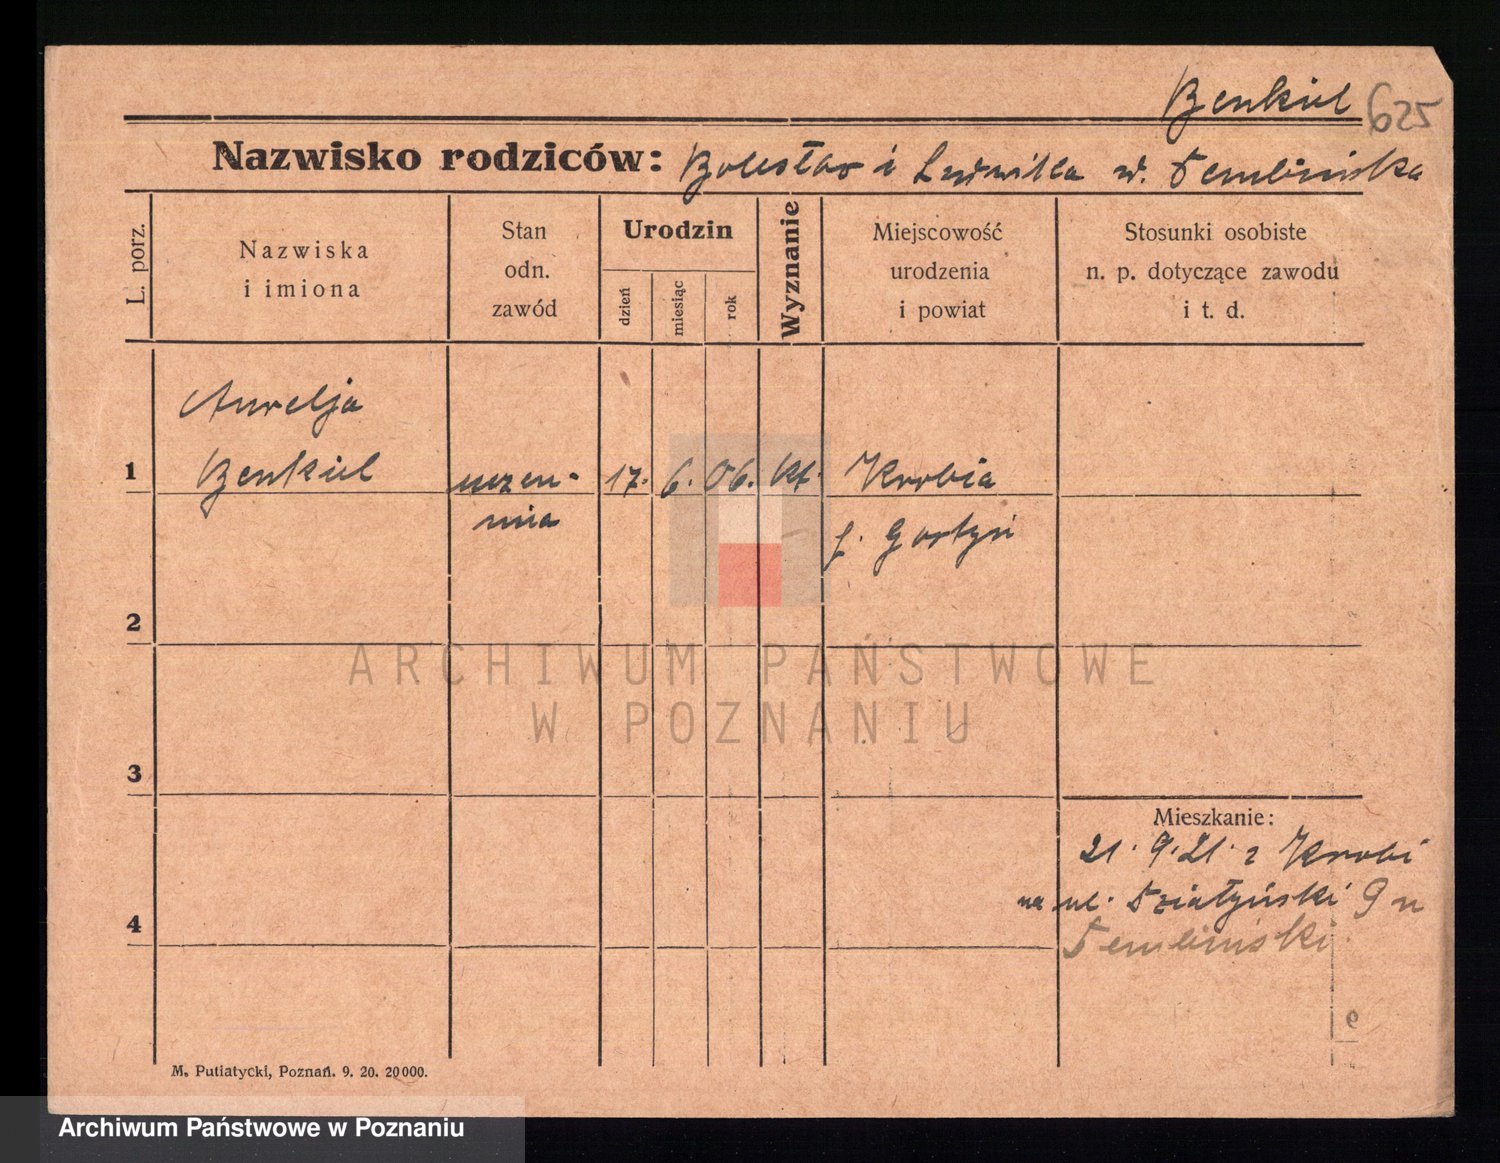 Benkiel 625
Nazwisko rodziców: Bolesław i Ludwika
L. porz.
Nazwiska
i imiona
Stan
odn.
zawód
Urodzin
dzień
miesiąc
rok
Wyznanie
Miejscowość
urodzenia
i powiat
Stosunki osobiste
n. p. dotyczące zawodu
i t. d.
Aurelja
1 Benkiel uczen- 17. 6. 06. kt. Krobia
nica p. Gostyń
2
ARCHIWUM PAŃSTWOWE
W POZNANIU
3
Mieszkanie:
21. 9. 21. z Krobi
na ul. Działyński 9 u
4
M. Putiatycki, Poznań. 9. 20. 20000.
Archiwum Państwowe w Poznaniu